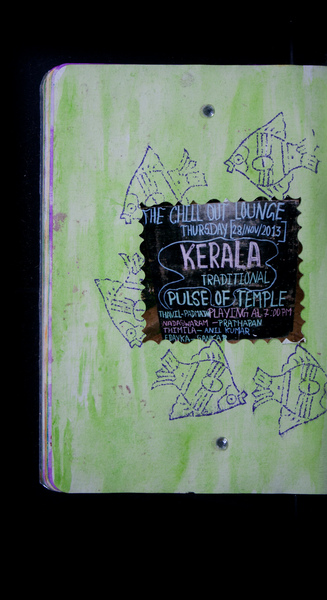 THE CHILL OUT LOUNGE
THURSDAY [28/NOV/2013]
KERALA
TRADITIONAL
PULSE OF TEMPLE
PLAYING AT 7:00 PM
NADASWARAM - PRATHAPAN
THIMILA - ANIL KUMAR